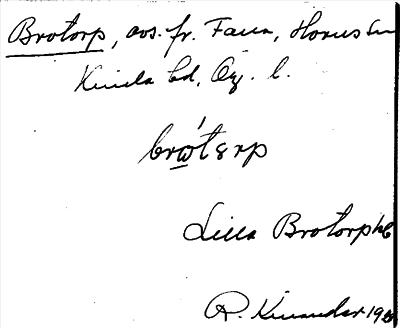 Brotorp, avs. fr. Fara, Horns sn
Kinda hd, Ög. l.
brωtɛrp
Lilla Brotorp
R. Kinander 19